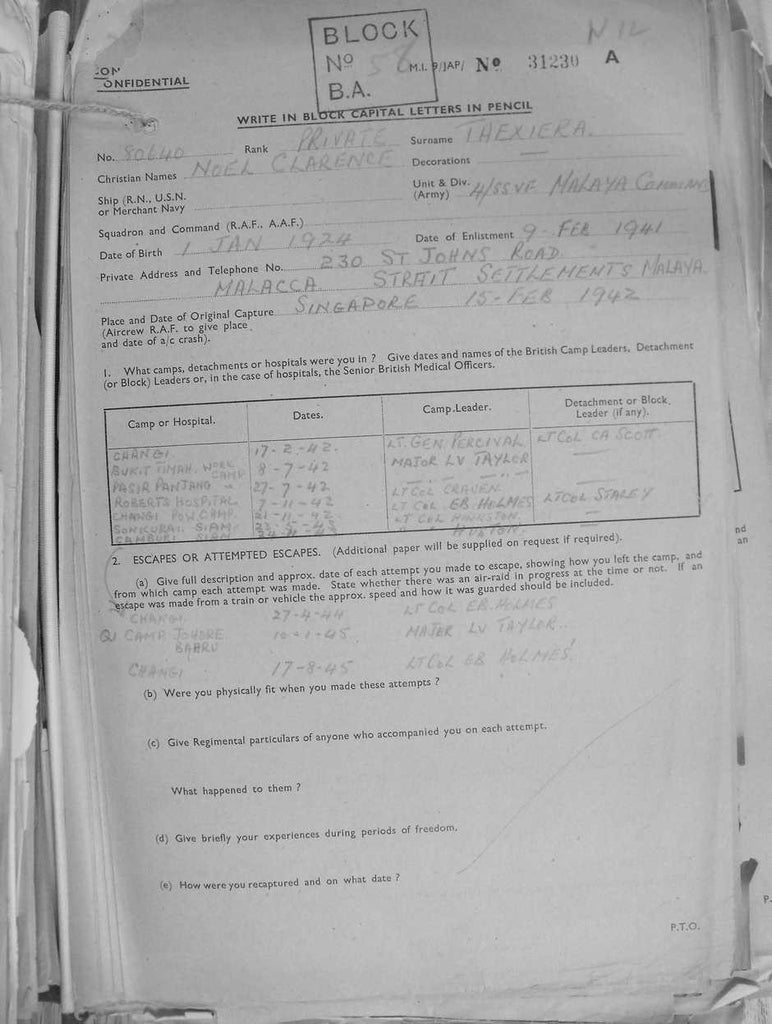 BLOCK
Nº 56 M.I. 9/JAP/ Nº 31230 A
B.A.
N 12
CON
ONFIDENTIAL
WRITE IN BLOCK CAPITAL LETTERS IN PENCIL
No. 80640 Rank PRIVATE Surname THEXIERA.
Christian Names NOEL CLARENCE Decorations —
Ship (R.N., U.S.N. or Merchant Navy
Unit & Div. (Army) 4/SSVF MALAYA COMMAND
Squadron and Command (R.A.F., A.A.F.)
Date of Birth 1 JAN 1924 Date of Enlistment 9-FEB 1941
Private Address and Telephone No. 230 ST JOHNS ROAD
MALACCA STRAIT SETTLEMENTS MALAYA.
Place and Date of Original Capture SINGAPORE 15-FEB 1942
(Aircrew R.A.F. to give place
and date of a/c crash).
1. What camps, detachments or hospitals were you in ? Give dates and names of the British Camp Leaders, Detachment
(or Block) Leaders or, in the case of hospitals, the Senior British Medical Officers.
Camp or Hospital. Dates. Camp Leader. Detachment or Block Leader (if any).
CHANGI. 17-2-42. LT. GEN. PERCIVAL LT COL CA SCOTT.
BUKIT TIMAH. WORK CAMP 8-7-42 MAJOR LV TAYLOR —
PASIR PANJANG " 27-7-42 " " " —
ROBERTS HOSPITAL. 7-11-42 LT COL CRAVEN. LTCOL STALEY
CHANGI POW CAMP. 21-11-42. LT COL EB HOLMES
SONKURAI. SIAM 23-5-43 LT COL
SIAM
2. ESCAPES OR ATTEMPTED ESCAPES. (Additional paper will be supplied on request if required).
(a) Give full description and approx. date of each attempt you made to escape, showing how you left the camp, and
from which camp each attempt was made. State whether there was an air-raid in progress at the time or not. If an
escape was made from a train or vehicle the approx. speed and how it was guarded should be included.
CHANGI. 27-4-44 LT COL EB HOLMES
CAMP JOHORE BAHRU 10-1-45 MAJOR LV TAYLOR.
CHANGI 17-8-45 LT COL EB HOLMES
(b) Were you physically fit when you made these attempts ?
(c) Give Regimental particulars of anyone who accompanied you on each attempt.
What happened to them ?
(d) Give briefly your experiences during periods of freedom.
(e) How were you recaptured and on what date ?
P.T.O.
nd
an
P.